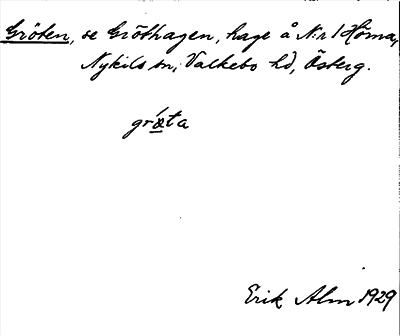 Gröten, se Gröthagen, hage å N:r 1 Höma,
Nykils sn, Valkebo hd, Österg.
grö́ta
Erik Alm 1929